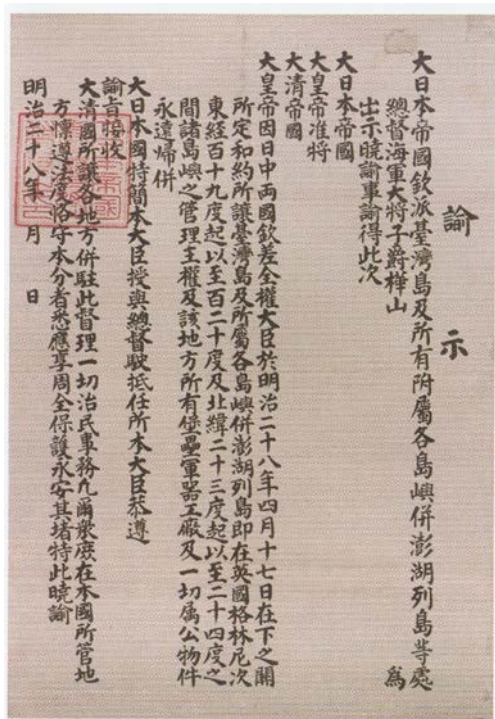 諭示
大日本帝國欽派臺灣島及所有附屬各島嶼併澎湖列島等處
總督海軍大將子爵樺山　　　　為
出示曉諭事諭得此次
大日本帝國
大皇帝准將
大清帝國
大皇帝因日中兩國欽差全權大臣於明治二十八年四月十七日在下之關
所定和約所讓臺灣島及所屬各島嶼併澎湖列島即在英國格林尼次
東經百十九度起以至百二十度及北緯二十三度起以至二十四度之
間諸島嶼之管理主權及該地方所有堡壘軍器工廠及一切屬公物件
永遠歸併
大日本國特簡本大臣授與總督駛抵任所本大臣恭遵
諭旨接收
大清國所讓各地方併駐此督理一切治民事務凡爾衆庶在本國所管地
方懍遵法度恪守本分者悉應享周全保護永安其堵特此曉諭
明治二十八年　月　日